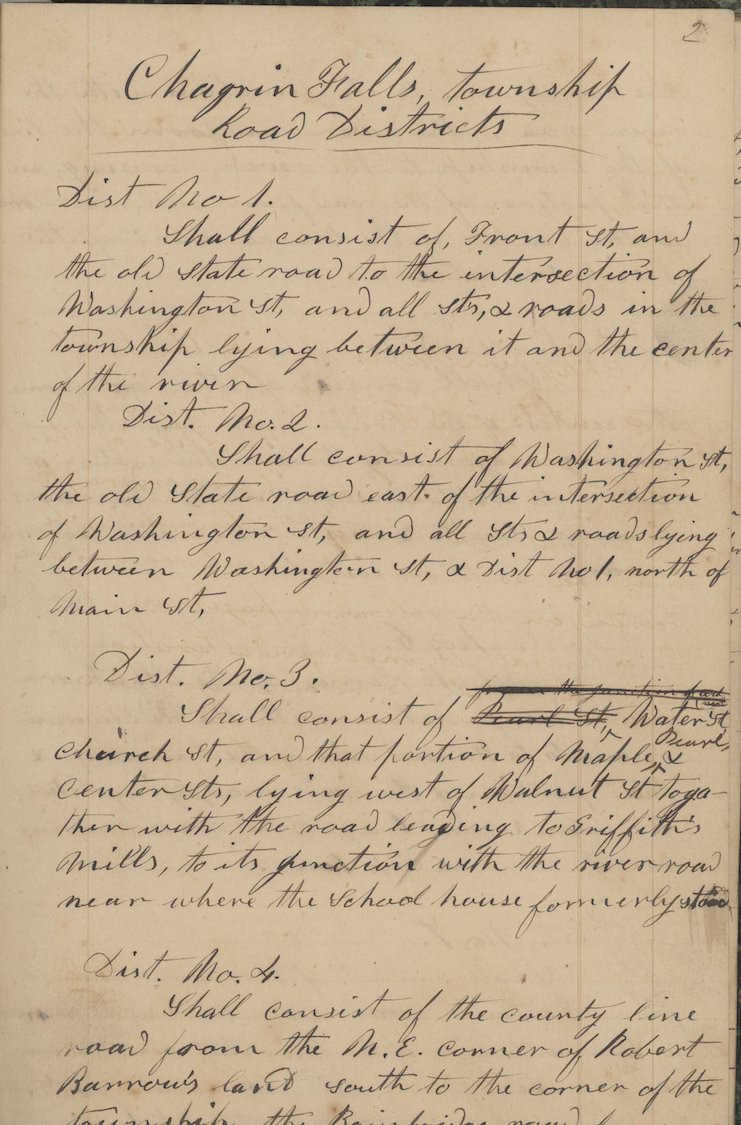 2
Chagrin Falls, township
Road Districts
Dist No 1.
Shall consist of, Front St, and
the old State road to the intersection of
Washington St, and all Sts, & roads in the
township lying between it and the center
of the river
Dist. No. 2.
Shall consist of Washington St,
the old State road east of the intersection
of Washington St, and all Sts & roads lying
between Washington St, & Dist No 1, north of
Main St,
Dist. No. 3.
from the junction of
Shall consist of Pearl St, Water St
Pearl,
Church St, and that portion of Maple, &
Center Sts, lying west of Walnut St toga-
ther with the road leading to Griffith's
Mills, to its junction with the river road
near where the School house formerly stood
Dist. No. 4.
Shall consist of the county line
road from the N.E. corner of Robert
Barrow's land south to the corner of the
township, the Bainbridge road